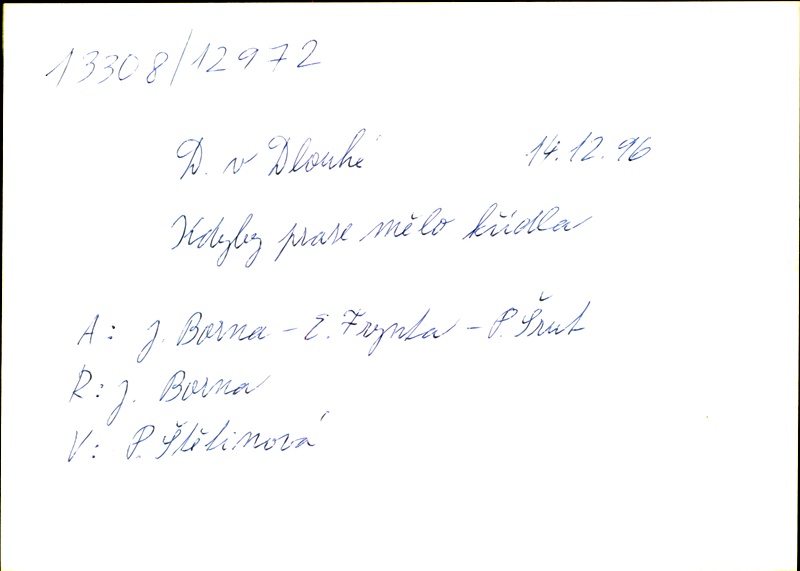 13308/12972
D. v Dlouhé 14.12.96
Kdyby prase mělo křídla
A: J. Borna - E. Frynta - P. Šrut
R: J. Borna
V: P. Štětinová